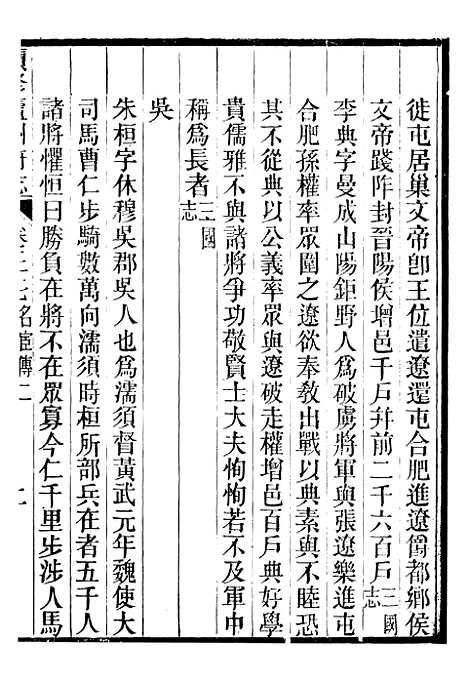 徙屯居巢文帝卽王位遣遼還屯合肥進遼爵都鄉侯
文帝踐阼封晉陽侯增邑千戶幷前二千六百戶三國志
李典字曼成山陽鉅野人爲破虜將軍與張遼樂進屯
合肥孫權率眾圍之遼欲奉敎出戰以典素與不睦恐
其不從典以公義率眾與遼破走權增邑百戶典好學
貴儒雅不與諸將爭功敬賢士大夫恂恂若不及軍中
稱爲長者三國志
吳
朱桓字休穆吳郡吳人也爲濡須督黃武元年魏使大
司馬曹仁步騎數萬向濡須時桓所部兵在者五千人
諸將懼桓曰勝負在將不在眾寡今仁千里步涉人馬
續修廬州府志 名宦傳二